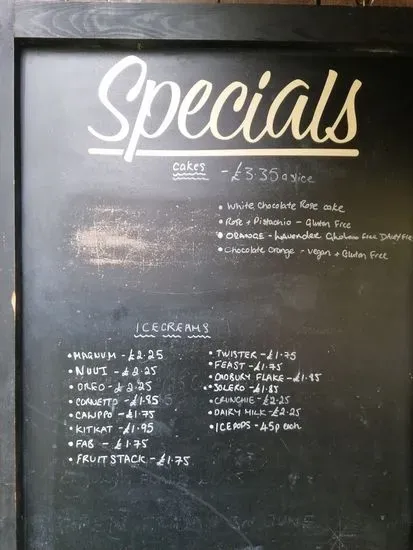 Specials
cakes - £3.35 a slice
• White Chocolate Rose cake
• Rose + Pistachio - Gluten Free
• ORANGE - Lavender Gluten Free Dairy Free
• Chocolate Orange - vegan + Gluten Free
ICECREAMS
• MAGNUM - £2.25
• NUUI - £2.25
• OREO - £2.25
• CORNETTO - £1.85
• CALIPPO - £1.75
• KITKAT - £1.95
• FAB - £1.75
• FRUIT STACK - £1.75
• TWISTER - £1.75
• FEAST - £1.75
• CADBURY FLAKE - £1.95
• SOLERO - £1.85
• CRUNCHIE - £2.25
• DAIRY MILK - £2.25
• ICE POPS - 45p each
JUNE